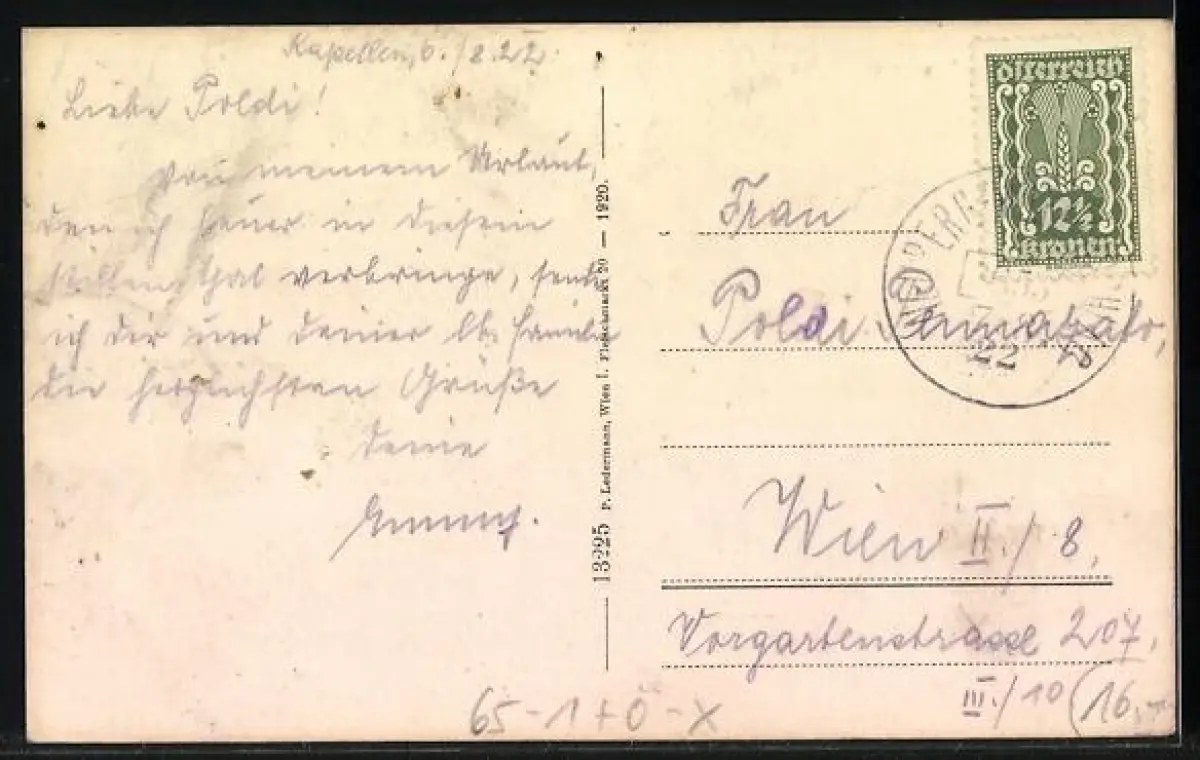 Kapellen, 6./8.22.
Liebe Poldi!
Von meinem Urlaub,
den ich heuer in diesem
stillen Thal verbringe, sende
ich Dir und Deiner lb. Familie
die herzlichsten Grüße
Deine
13225 P. Ledermann, Wien I. Fleischmarkt 20 — 1920.
Österreich
12½
Kronen
22
Frau
Poldi
Wien II./8,
Vorgartenstrasse 207,
III./10 (16.
65-1+Ö-X